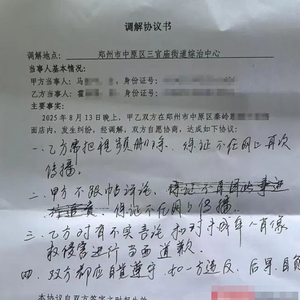 调解协议书
调解地点：郑州市中原区三官庙街道综治中心
当事人基本情况：
甲方当事人：马 ，身份证号：
乙方当事人：霍 ，身份证号：
主要事实：
2025年8月13日晚上，甲乙双方在郑州市中原区秦岭
面店内，发生纠纷。经调解，双方自愿协商，达成如下协议：
一、乙方带把视频删除，保证不在网上再次
传播。
二、甲方不跟帖评论，保证不在网上传播。
三、乙方对有不实言论和对未成年人有侵
权侵害进行当面道歉。
四、双方都应自觉遵守，如一方违反，后果自负
本协议自双方签字之时起生效